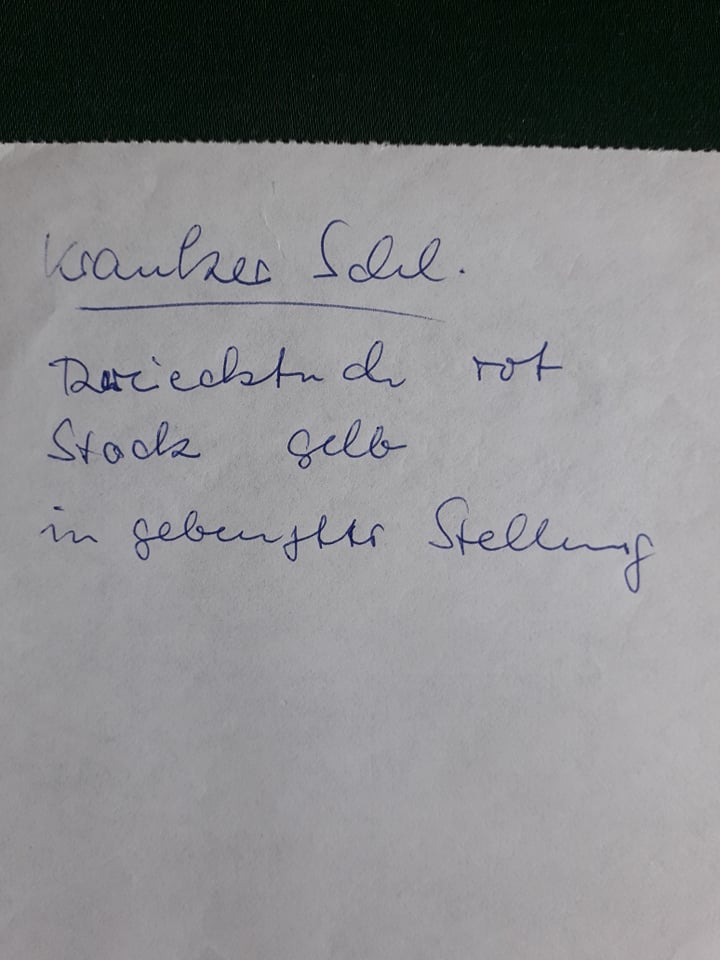 Kranker Schl.
Dreiecktuch rot
Stock gelb
in gebeugter Stellung